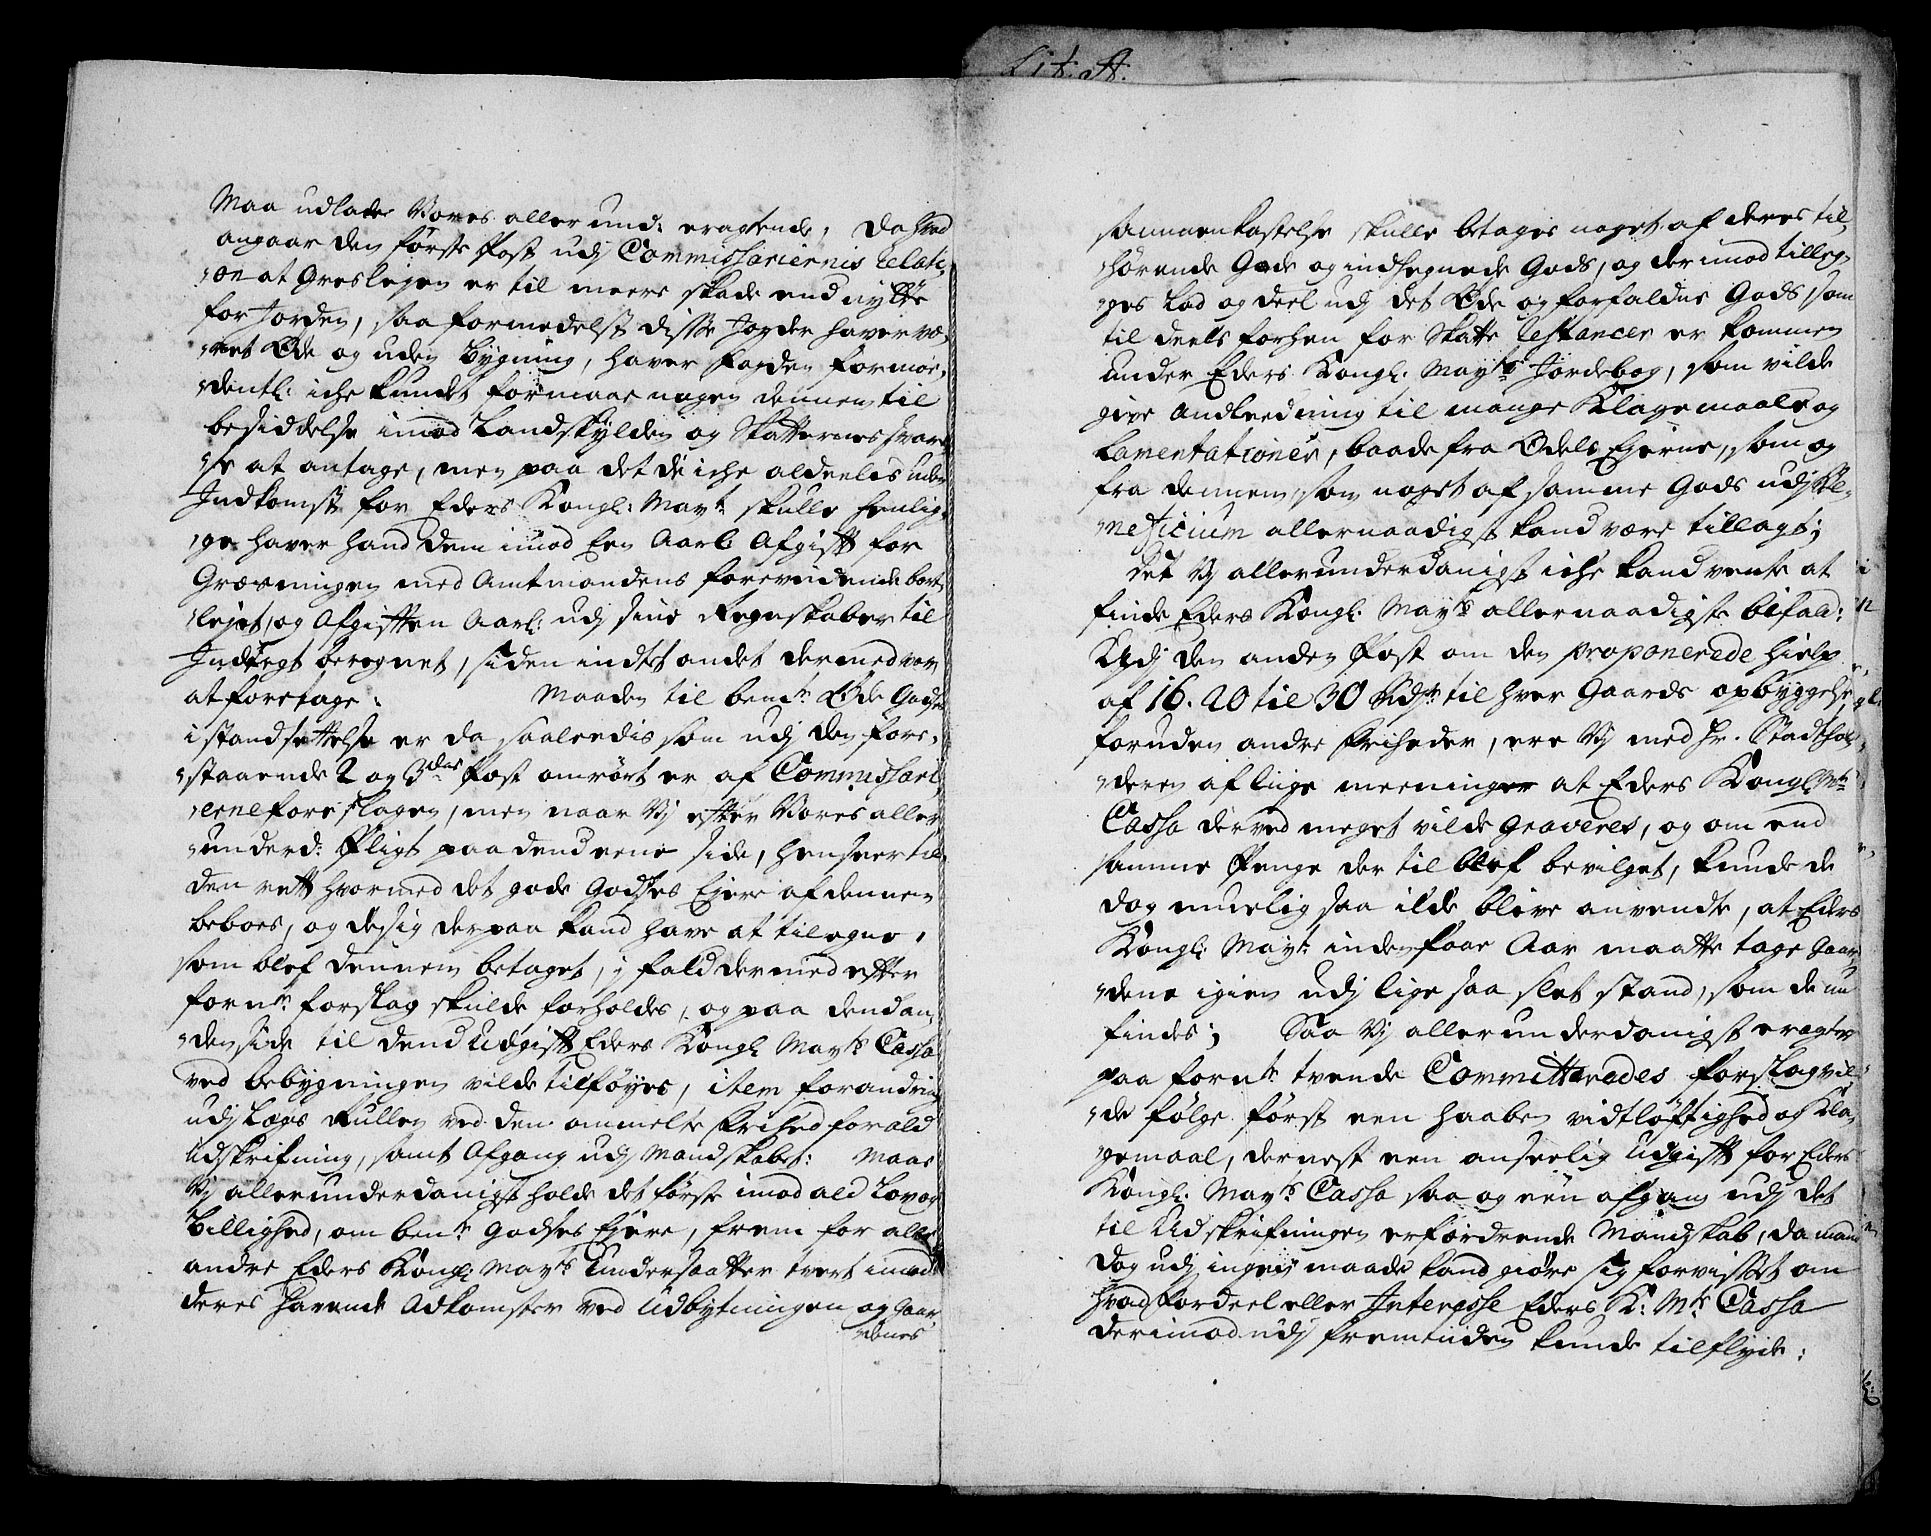 Lit. A.
Maa udlade Vores allerund: eragtende, Da hvad
angaar den første Post udj Commissariernis relati-
-on at Græslejen er til meere skade end nytte
for Jorden, saa formedelst disse Jorder haver væ-
-ret Øde og uden bygning, haver Fogden formoe-
-dentl: iche kundet formaae nogen dennem til
besiddelse imod Landskylden og Skatternes svarel-
-se at antage, men paa det de iche aldeelis uden
Indkomst for Eders Kongl: Mayt: skulle henlig-
-ge haver hand dem imod Een Aarl: Afgifft for
Græsningen med Amtmandens forevidende bort-
-lejet, og Afgifften Aarl: udj sine Regnskaber til
Indtegt beregnet, siden indtet andet dermed var
at foretage: Maaden til bem:te Øde Godses
istandsettelse er da saaledis som udj den fore-
-staaende 2 og 3die Post omrørt er af Commissari-
-erne foreslagen, men naar Vj effter Vores aller-
-underd: Pligt paa dend eene side, henseer til
den rett hvormed det gode Godses Ejere af dennem
beboes, og de sig derpaa kand have at tilegne,
som blef dennem betaget, j fald dermed effter
forn:te forslag skulde forholdes, og paa dend an-
-den side til dend Udgifft Eders Kongl: Mayts Cassa
ved bebygningen vilde tilføyes, item forandring
udj Lægs Rullen ved den ommelte frihed for ald
Udskrifning, samt Afgang udj Mandskabet: Maae
Vj allerunderdanigst holde det første imod ald Lov og
Billighed, om bem:te Godses Ejere, frem for alle
andre Eders Kongl: Mayts Undersaatter tvert imod
deres havende Adkomster ved Udbytningen og Gaar-
-denes
sammenkastelse skulle betages noget af deres til-
-hørende Gode og indhegnede Gods, og derimod tilleg-
-ges Lod og deel udj det Øde og forfaldne Gods, som
til deels forhen for Skatte Restancer er kommen
under Eders Kongl: Mayts Jordebog, som vilde
give Andleedning til mange Klagemaale og
Lamentationer, baade fra Odels Ejerne, som og
fra dennem, som noget af samme Gods udj Be-
-neficium allernaadigst kand være tillagt;
det Vj allerunderdanigst iche kand vente at
finde Eders Kongl: Mayts allernaadigste bifald:
Udj den anden Post om den proponerede hielp
af 16. 20 til 30 Rdr til hver Gaards opbyggelse,
foruden andre friheder, ere Vj med Hr. Stadthol-
-deren af liige meeninger at Eders Kongl: Mts
Cassa derved meget vilde graveres, og om end
samme Penge der til blef bevilget, kunde de
dog muelig saa ilde blive anvendte, at Eders
Kongl: Mayt: inden faae Aar maatte tage Gaar-
-dene igien udj lige saa slet stand, som de nu
findes; Saa Vj allerunderdanigst eragter
paa forn:te tvende Committeredes forslag vil-
-de følge først een haaben vidtløftighed og Kla-
-gemaal, dernest een anseelig Udgifft for Eders
Kongl: Mayts Cassa saa og een afgang udj det
til Udskrifningen erfordrende Mandskab, da mand
dog udj ingen maade kand giøre sig forvisset om
hvad fordeel eller Interesse Eders K: Mts Cassa
derimod udj fremtiden kunde tilflyde: